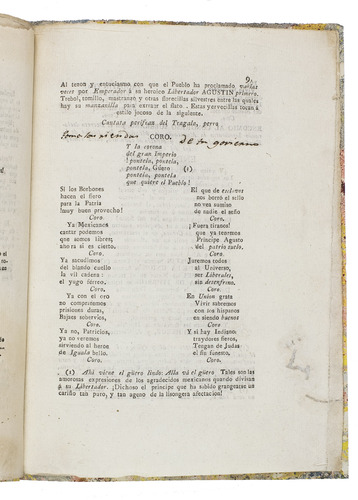 9.
Al tenor y entusiasmo con que el Pueblo ha proclamado varias
veces por Emperador á su heroico Libertador AGUSTIN primero.
Trebol, tomillo, mastranzo y otras florecillas silvestres entre las quales
hay su manzanilla para extraer el flato. Estas yervecillas tocan á
estilo jocoso de la siguiente.
Cantata parifian del Tragalo, perro
CORO.
De tu govierno
Y la corona
del gran Imperio
¡ pontela, pontela,
pontela, Güero (1)
pontelo, pontelo
que quiere el Pueblo!
Si los Borbones
hacen el fiero
para la Patria
¡muy buen provecho!
Coro.
Ya Mexicanos
cantar podemos
que somos libres;
ahora si es cierto.
Coro.
Ya sacudimos
del blando cuello
la vil cadena:
el yugo férreo.
Coro.
Ya con el oro
no compraremos
prisiones duras,
Bajaes sobervios,
Coro.
Ya no, Patricios,
ya no veremos
sirviendo al heroe
de Iguala bello.
Coro.
El que de esclavos
nos borró el sello
no vea sumian
de nadie el seño
Coro.
¡Fuera tiranos!
que ya tenemos
Principe Agusto
del patrio suelo.
Coro.
Juremos todos:
al Universo,
ser Liberales,
sin desenfreno.
Coro.
En Union grata
Vivir sabremos
con los hispanos
en siendo buenos
Coro
Y si hay Indianos
traydores fieros,
Tengan de Judas
el fin funesto,
Coro.
(1) Ahá viene el güero lindo: Alla vá el güero Tales son las
amorosas expresiones de los agradecidos mexicanos quando divisan
á su Libertador. ¡Dichoso el principe que ha subido grangearse un
cariño tan puro, y tan ageno de la lisongera afectacion!